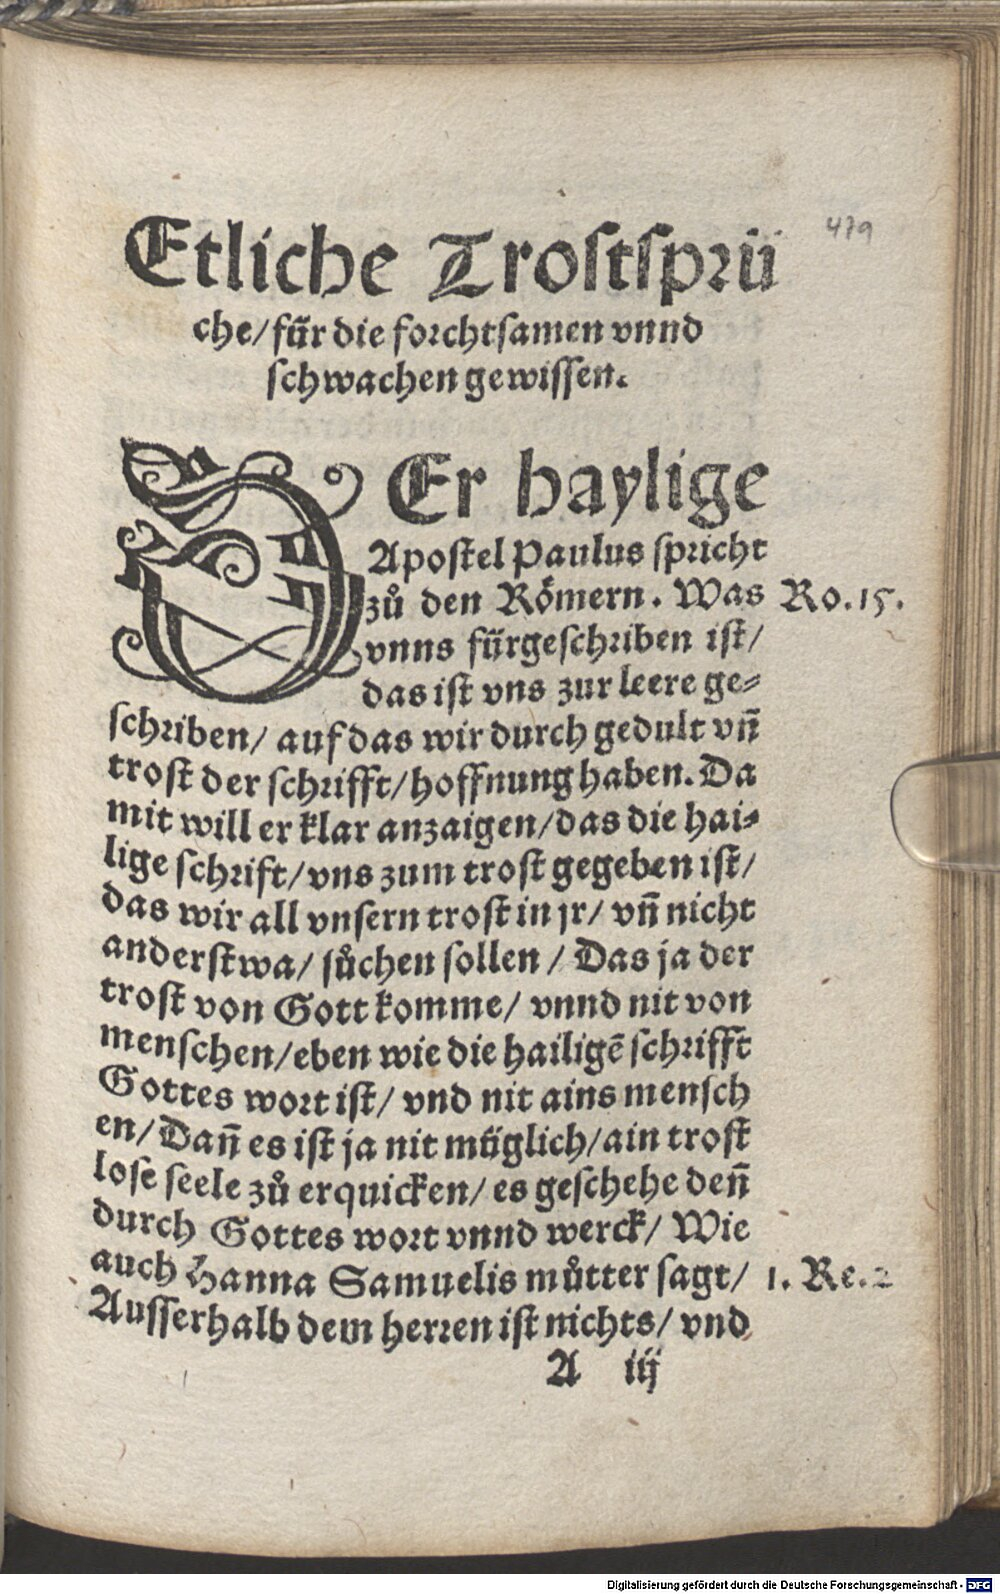 479
Etliche Trostsprü
che/ für die forchtsamen vnnd
schwachen gewissen.
DEr haylige
Apostel Paulus spricht
zů den Römern. Was Ro.15.
vnns fürgeschriben ist/
das ist vns zur leere ge-
schriben/ auf das wir durch gedult vñ
trost der schrifft/ hoffnung haben. Da
mit will er klar anzaigen/ das die hai-
lige schrift/ vns zum trost gegeben ist/
das wir all vnsern trost in jr/ vñ nicht
anderstwa/ sůchen sollen/ Das ja der
trost von Gott komme/ vnnd nit von
menschen/ eben wie die hailigẽ schrifft
Gottes wort ist/ vnd nit ains mensch
en/ Dañ es ist ja nit müglich/ ain trost
lose seele zů erquicken/ es geschehe deñ
durch Gottes wort vnnd werck/ Wie
auch Hanna Samuelis můtter sagt/ 1. Re.2
Ausserhalb dem herren ist nichts/ vnd
A iij
Digitalisierung gefördert durch die Deutsche Forschungsgemeinschaft - DFG